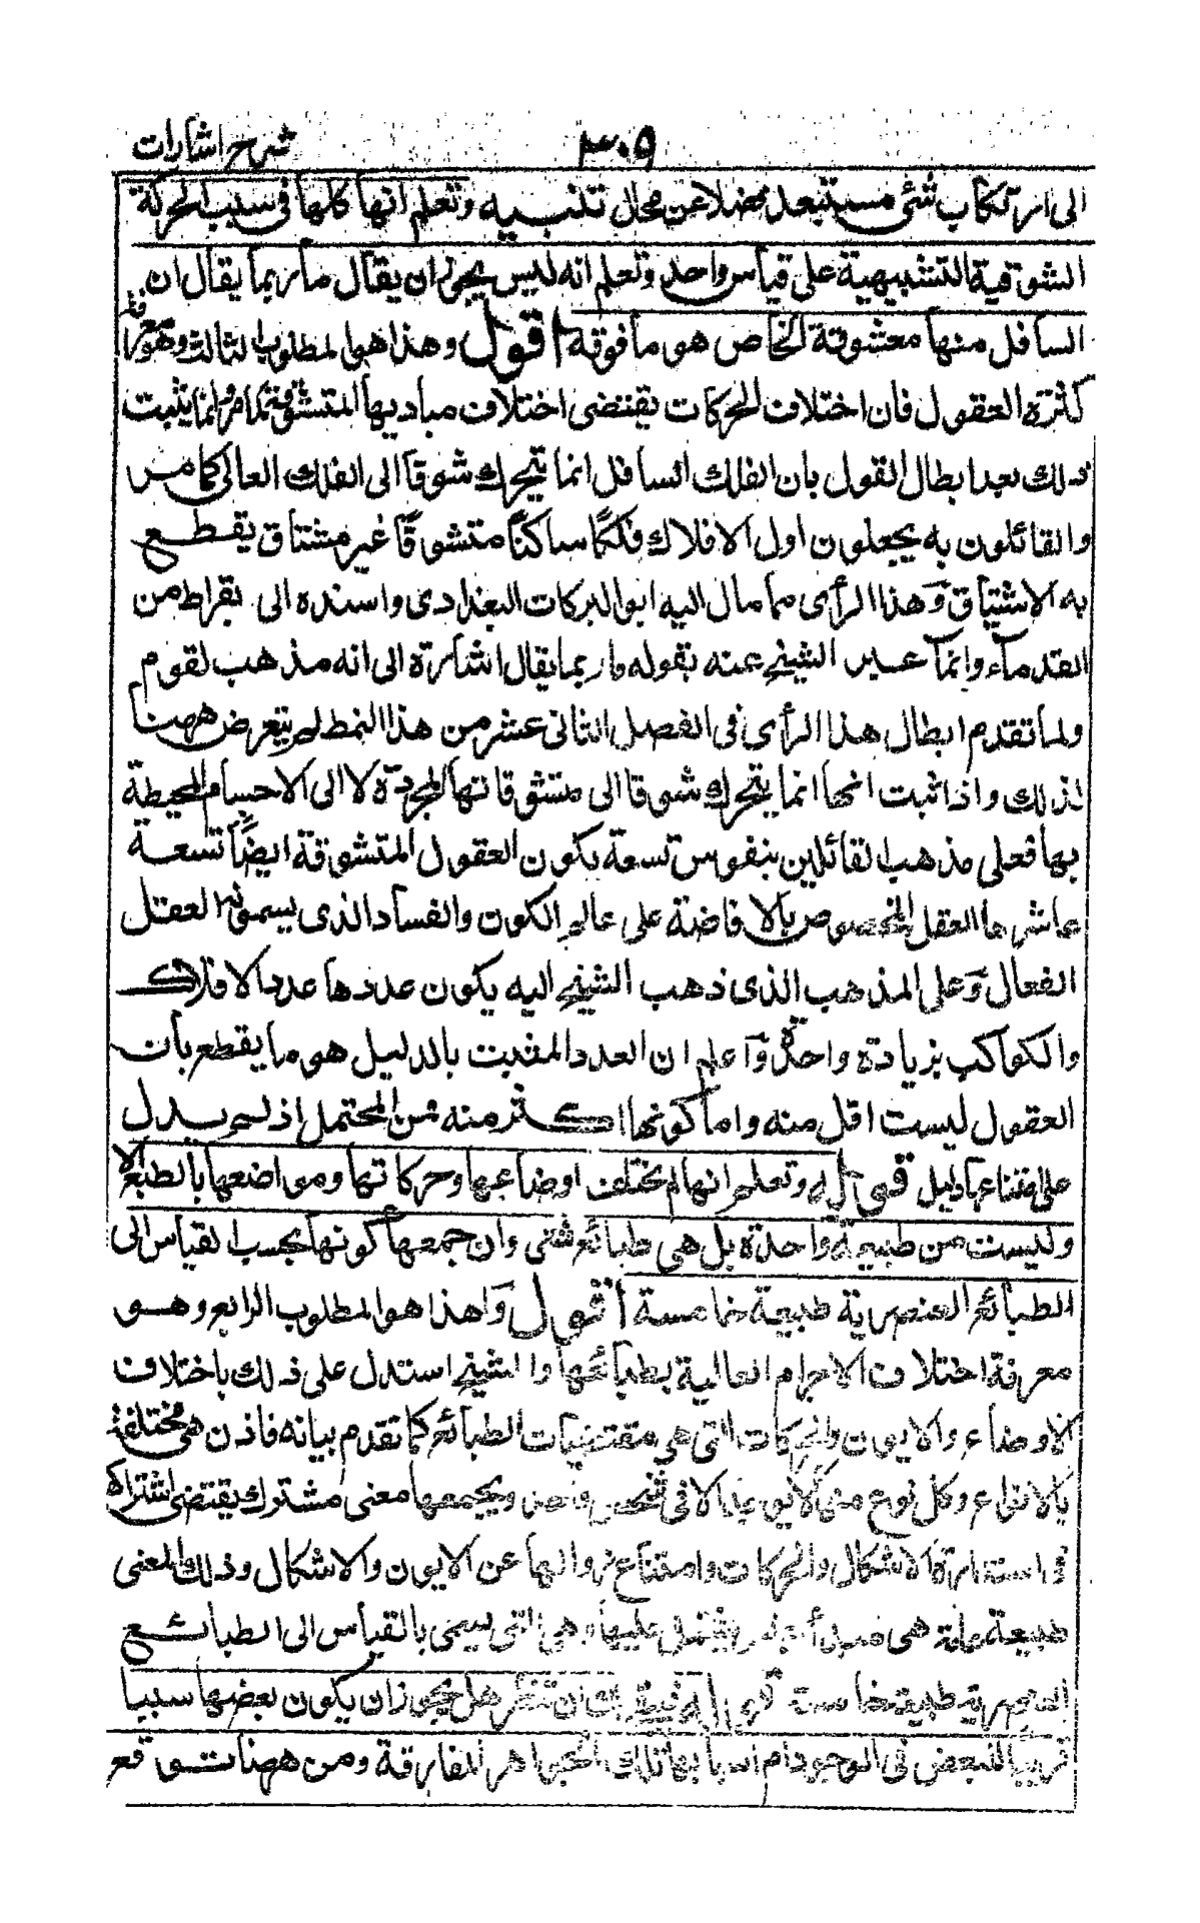 شرح اشارات ٣٠٩
الى ارتكاب شئ مستبعد فضلا عن محال تنبيه وتعلم انها كلها فى سبب الحركة
الشوقية التشبيهية على قياس واحد وتعلم انه ليس يجوز ان يقال ما ربما يقال ان
السافل منها معشوقة الخاص هو ما فوقه اقول وهذا هو المطلوب الثالث وهو معرفة
كثرة العقول فان اختلاف الحركات يقتضى اختلاف مباديها المتشوقة كما مر وانما يثبت
ذلك بعد ابطال القول بان الفلك السافل انما يتحرك شوقا الى الفلك العالى كما مر
والقائلون به يجعلون اول الافلاك فلكا ساكنا متشوقا غير مشتاق يقطع
به الاشتياق وهذا الرأى مما مال اليه ابو البركات البغدادى واسنده الى بقراط من
القدماء وانما عبر الشيخ عنه بقوله ما ربما يقال اشارة الى انه مذهب لقوم
ولما تقدم ابطال هذا الرأى فى الفصل الثانى عشر من هذا النمط لم يتعرض ههنا
لذلك واذا ثبت انها انما يتحرك شوقا الى متشوقاتها المجردة لا الى الاجسام المحيطة
بها فعلى مذهب القائلين بنفوس تسعة يكون العقول المتشوقة ايضا تسعة
عاشرها العقل المخصوص بالافاضة على عالم الكون والفساد الذى يسمونه العقل
الفعال وعلى المذهب الذى ذهب الشيخ اليه يكون عددها عدد الافلاك
والكواكب بزيادة واحدة واعلم ان العدد المثبت بالدليل هو ما يقطع بان
العقول ليست اقل منه واما كونها اكثر منه فمن المحتمل اذ لم يدل
على امتناعها دليل قوله وتعلم انها لم يختلف اوضاعها وحركاتها ومواضعها بالطبع الا
وليست من طبيعة واحدة بل هى طبائع شتى وان جمعها كونها بحسب القياس الى
الطبائع العنصرية طبيعة خامسة اقول وهذا هو المطلوب الرابع وهو
معرفة اختلاف الاجرام العالية بطبائعها والشيخ استدل على ذلك باختلاف
الاوضاع والايون والحركات التى هى مقتضيات الطبائع كما تقدم بيانه فاذن هى مختلفة
بالانواع وكل نوع منها لايوجد الا فى شخص واحد ويجمعها معنى مشترك يقتضى اشتراك
فى استدارة الاشكال والحركات وامتناع زوالها عن الايون والاشكال وذلك المعنى
طبيعة عامة هى مبدأ يشتمل عليها وهى التى يسمى بالقياس الى الطبائع
العنصرية طبيعة خامسة قوله فبقى ان تنظر هل يجوز ان يكون بعضها سببا
قريبا للبعض فى الوجود ام اسبابها تلك الجواهر المفارقة ومن ههنا تتوقع